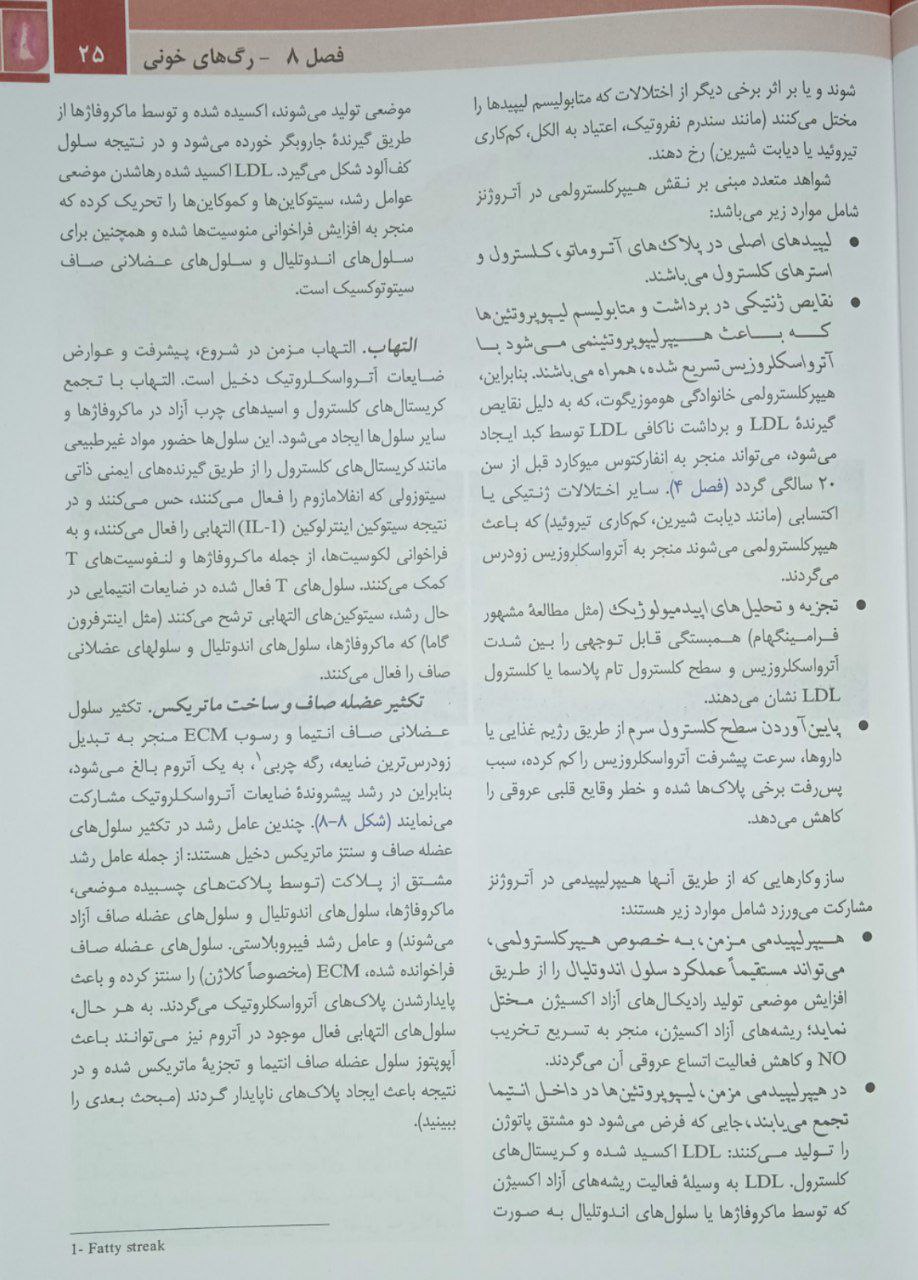 فصل ۸ - رگ‌های خونی
۲۵
شوند و یا بر اثر برخی دیگر از اختلالات که متابولیسم لیپیدها را
مختل می‌کنند (مانند سندرم نفروتیک، اعتیاد به الکل، کم‌کاری
تیروئید یا دیابت شیرین) رخ دهند.
شواهد متعدد مبنی بر نقش هیپرکلسترولمی در آتروژنز
شامل موارد زیر می‌باشد:
● لیپیدهای اصلی در پلاک‌های آتروماتو، کلسترول و
استرهای کلسترول می‌باشند.
● نقایص ژنتیکی در برداشت و متابولیسم لیپوپروتئین‌ها
که باعث هیپرلیپوپروتئینمی می‌شود با
آترواسکلروزیس تسریع شده، همراه می‌باشند. بنابراین،
هیپرکلسترولمی خانوادگی هوموزیگوت، که به دلیل نقایص
گیرندهٔ LDL و برداشت ناکافی LDL توسط کبد ایجاد
می‌شود، می‌تواند منجر به انفارکتوس میوکارد قبل از سن
۲۰ سالگی گردد (فصل ۴). سایر اختلالات ژنتیکی یا
اکتسابی (مانند دیابت شیرین، کم‌کاری تیروئید) که باعث
هیپرکلسترولمی می‌شوند منجر به آترواسکلروزیس زودرس
می‌گردند.
● تجزیه و تحلیل‌های اپیدمیولوژیک (مثل مطالعهٔ مشهور
فرامینگهام) همبستگی قابل توجهی را بین شدت
آترواسکلروزیس و سطح کلسترول تام پلاسما یا کلسترول
LDL نشان می‌دهند.
● پایین‌آوردن سطح کلسترول سرم از طریق رژیم غذایی یا
داروها، سرعت پیشرفت آترواسکلروزیس را کم کرده، سبب
پس‌رفت برخی پلاک‌ها شده و خطر وقایع قلبی عروقی را
کاهش می‌دهد.
سازوکارهایی که از طریق آنها هیپرلیپیدمی در آتروژنز
مشارکت می‌ورزد شامل موارد زیر هستند:
● هیپرلیپیدمی مزمن، به خصوص هیپرکلسترولمی،
می‌تواند مستقیماً عملکرد سلول اندوتلیال را از طریق
افزایش موضعی تولید رادیکال‌های آزاد اکسیژن مختل
نماید؛ ریشه‌های آزاد اکسیژن، منجر به تسریع تخریب
NO و کاهش فعالیت اتساع عروقی آن می‌گردند.
● در هیپرلیپیدمی مزمن، لیپوپروتئین‌ها در داخل انتیما
تجمع می‌یابند، جایی که فرض می‌شود دو مشتق پاتوژن
را تولید می‌کنند: LDL اکسید شده و کریستال‌های
کلسترول. LDL به وسیلهٔ فعالیت ریشه‌های آزاد اکسیژن
که توسط ماکروفاژها یا سلول‌های اندوتلیال به صورت
موضعی تولید می‌شوند، اکسیده شده و توسط ماکروفاژها از
طریق گیرندهٔ جاروبگر خورده می‌شود و در نتیجه سلول
کف‌آلود شکل می‌گیرد. LDL اکسید شده رهاشدن موضعی
عوامل رشد، سیتوکاین‌ها و کموکاین‌ها را تحریک کرده که
منجر به افزایش فراخوانی منوسیت‌ها شده و همچنین برای
سلول‌های اندوتلیال و سلول‌های عضلانی صاف
سیتوتوکسیک است.
التهاب. التهاب مزمن در شروع، پیشرفت و عوارض
ضایعات آترواسکلروتیک دخیل است. التهاب با تجمع
کریستال‌های کلسترول و اسیدهای چرب آزاد در ماکروفاژها و
سایر سلول‌ها ایجاد می‌شود. این سلول‌ها حضور مواد غیرطبیعی
مانند کریستال‌های کلسترول را از طریق گیرنده‌های ایمنی ذاتی
سیتوزولی که انفلامازوم را فعال می‌کنند، حس می‌کنند و در
نتیجه سیتوکین اینترلوکین (IL-1) التهابی را فعال می‌کنند، و به
فراخوانی لکوسیت‌ها، از جمله ماکروفاژها و لنفوسیت‌های T
کمک می‌کنند. سلول‌های T فعال شده در ضایعات انتیمایی در
حال رشد، سیتوکین‌های التهابی ترشح می‌کنند (مثل اینترفرون
گاما) که ماکروفاژها، سلول‌های اندوتلیال و سلولهای عضلانی
صاف را فعال می‌کنند.
تکثیر عضله صاف و ساخت ماتریکس. تکثیر سلول
عضلانی صاف انتیما و رسوب ECM منجر به تبدیل
زودرس‌ترین ضایعه، رگه چربی۱، به یک آتروم بالغ می‌شود،
بنابراین در رشد پیشروندهٔ ضایعات آترواسکلروتیک مشارکت
می‌نمایند (شکل ۸-۸). چندین عامل رشد در تکثیر سلول‌های
عضله صاف و سنتز ماتریکس دخیل هستند: از جمله عامل رشد
مشتق از پلاکت (توسط پلاکت‌های چسبیده موضعی،
ماکروفاژها، سلول‌های اندوتلیال و سلول‌های عضله صاف آزاد
می‌شوند) و عامل رشد فیبروبلاستی. سلول‌های عضله صاف
فراخوانده شده، ECM (مخصوصاً کلاژن) را سنتز کرده و باعث
پایدارشدن پلاک‌های آترواسکلروتیک می‌گردند. به هر حال،
سلول‌های التهابی فعال موجود در آتروم نیز می‌توانند باعث
آپوپتوز سلول عضله صاف انتیما و تجزیهٔ ماتریکس شده و در
نتیجه باعث ایجاد پلاک‌های ناپایدار گردند (مبحث بعدی را
ببینید).
1- Fatty streak